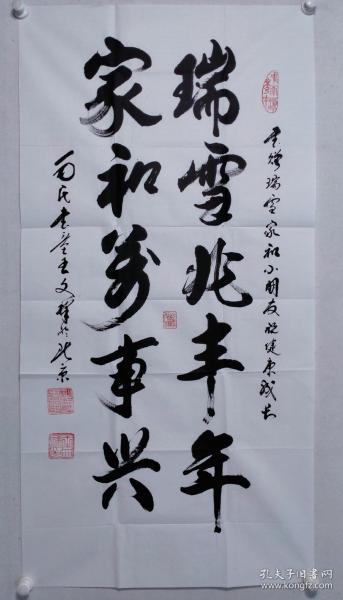 书赠瑞雪家和小朋友祝健康成长
瑞雪兆丰年
家和万事兴
书童王文祥於北京
孔夫子旧书网